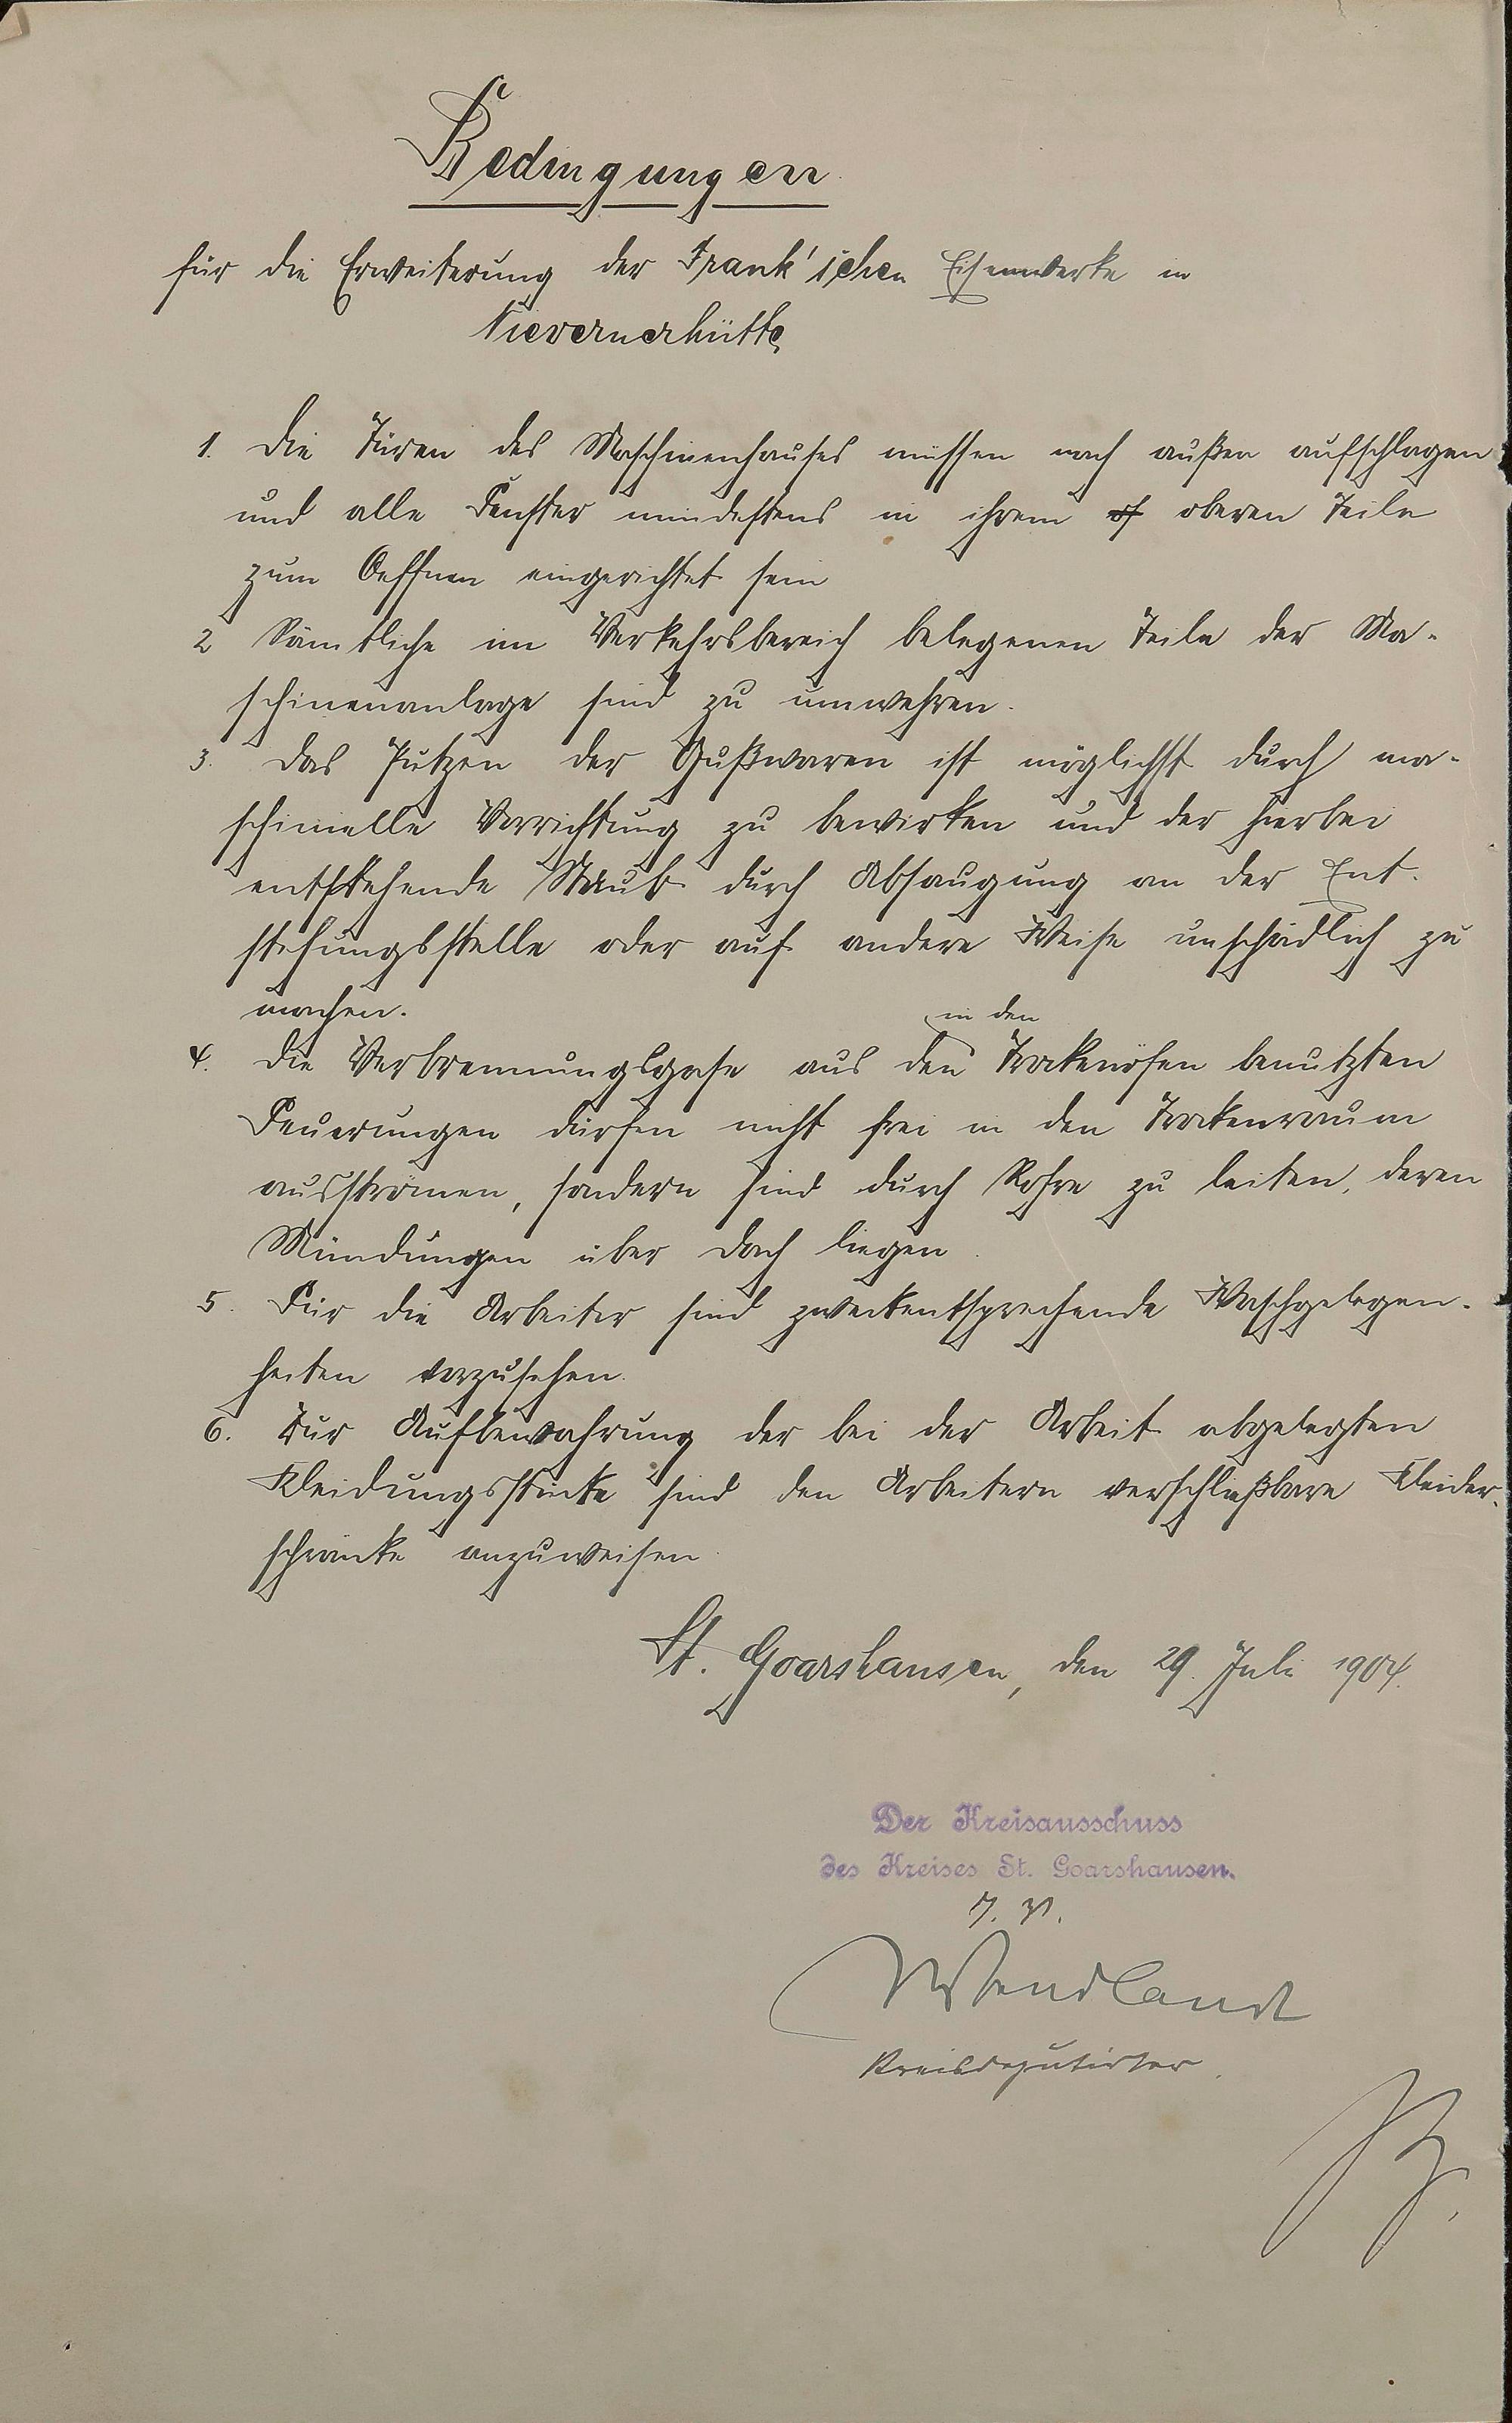 Bedingungen
für die Erweiterung der Frank'schen Eisenwerke in
Nievernerhütte
1. Die Türen des Maschinenhauses müssen nach außen aufschlagen
und alle Fenster mindestens in ihrem oberen Teile
zum Oeffnen eingerichtet sein
2 Sämtliche im Verkehrsbereich belegenen Teile der Ma-
schinenanlage sind zu umwehren.
3. Das Putzen der Gußwaren ist möglichst durch ma-
schinelle Vorrichtung zu bewirken und der hierbei
entstehende Staub durch Absaugung an der Ent-
stehungsstelle oder auf andere Weise unschädlich zu
machen.
in den
4. Die Verbrennungsgase aus den Trockenöfen benutzten
Feuerungen dürfen nicht frei in den Trockenraum
ausströmen, sondern sind durch Rohre zu leiten, deren
Mündungen über Dach liegen.
5. Für die Arbeiter sind zweckentsprechende Waschgelegen-
heiten vorzusehen.
6. Zur Aufbewahrung der bei der Arbeit abgelegten
Kleidungsstücke sind den Arbeitern verschließbare Kleider-
schränke anzuweisen.
St. Goarshausen, den 29. Juli 1904.
Der Kreisausschuss
des Kreises St. Goarshausen.
J. V.
Wendlandt
Kreisdeputirter.